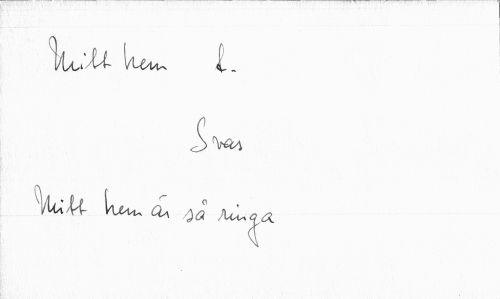 Mitt hem t.
Svas
Mitt hem är så ringa